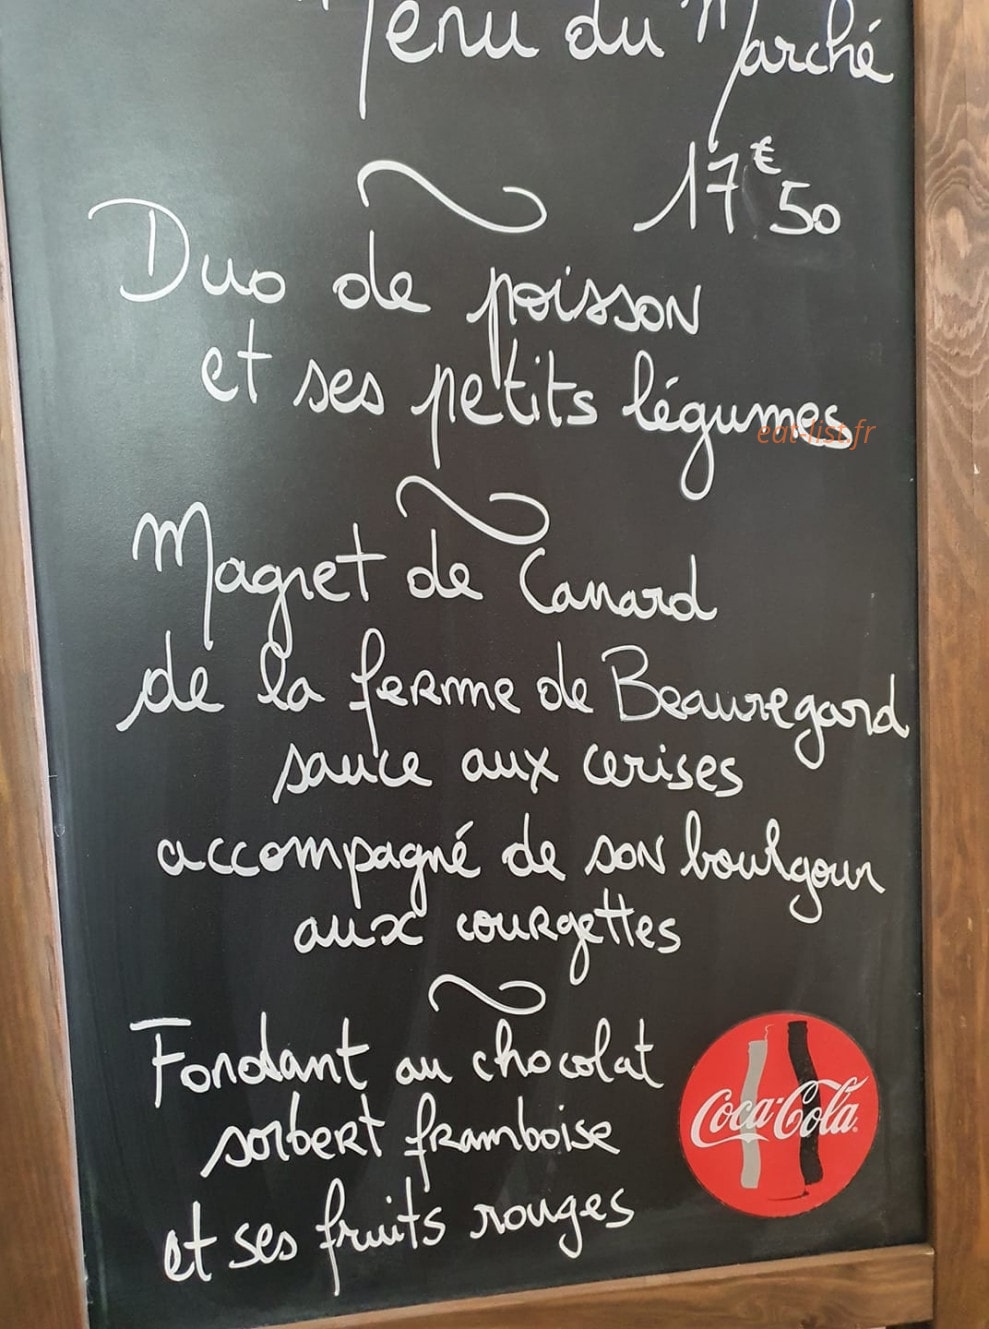 Menu du Marché
17€50
Duo de poisson
et ses petits légumes
eat-list.fr
Magret de Canard
de la ferme de Beauregard
sauce aux cerises
accompagné de son boulgour
aux courgettes
Fondant au chocolat
sorbert framboise
et ses fruits rouges
Coca-Cola